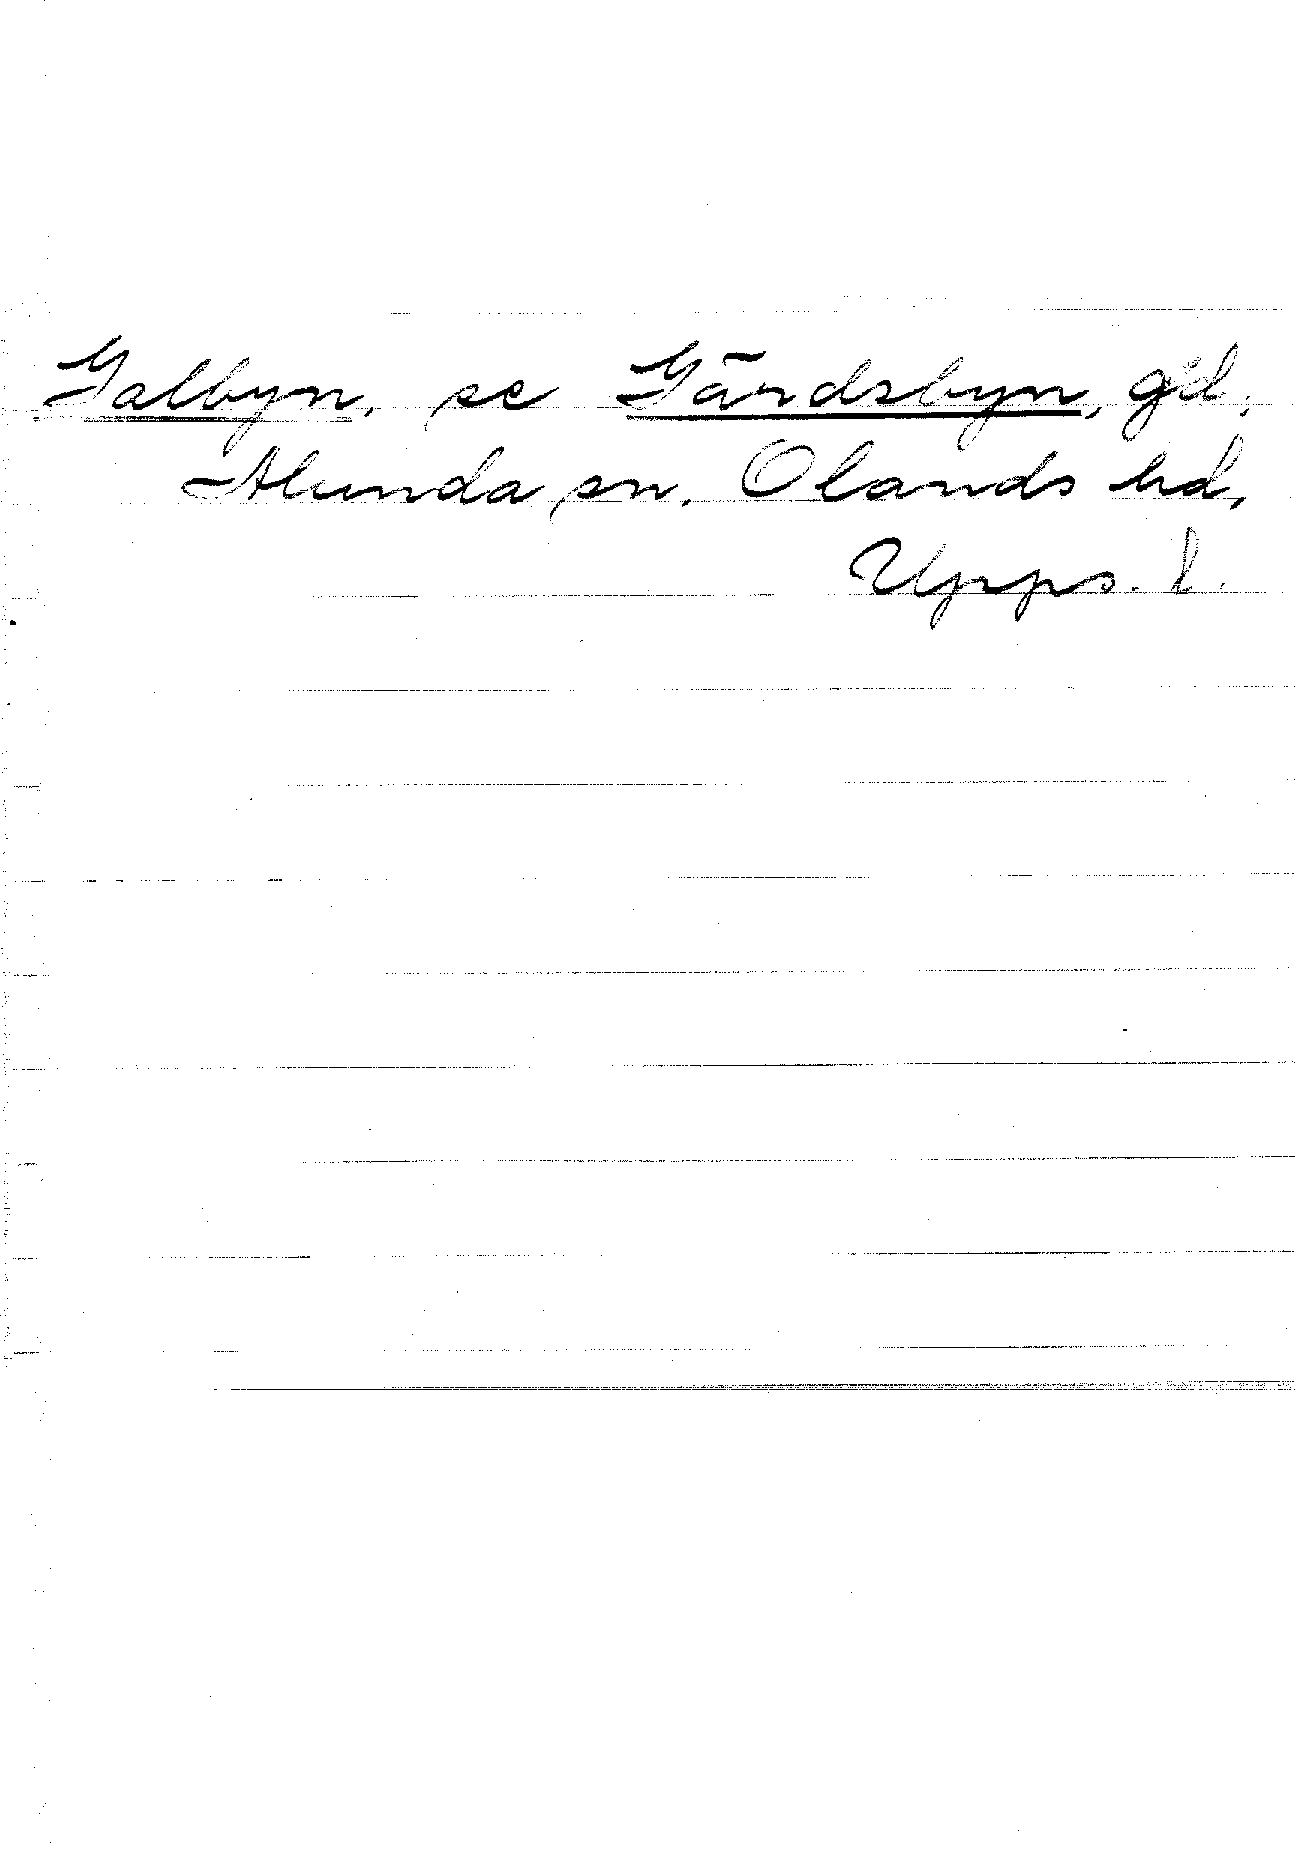 Galbyn, se Gärdsbyn, gd,
Alunda sn, Olands hd,
Upps. l.